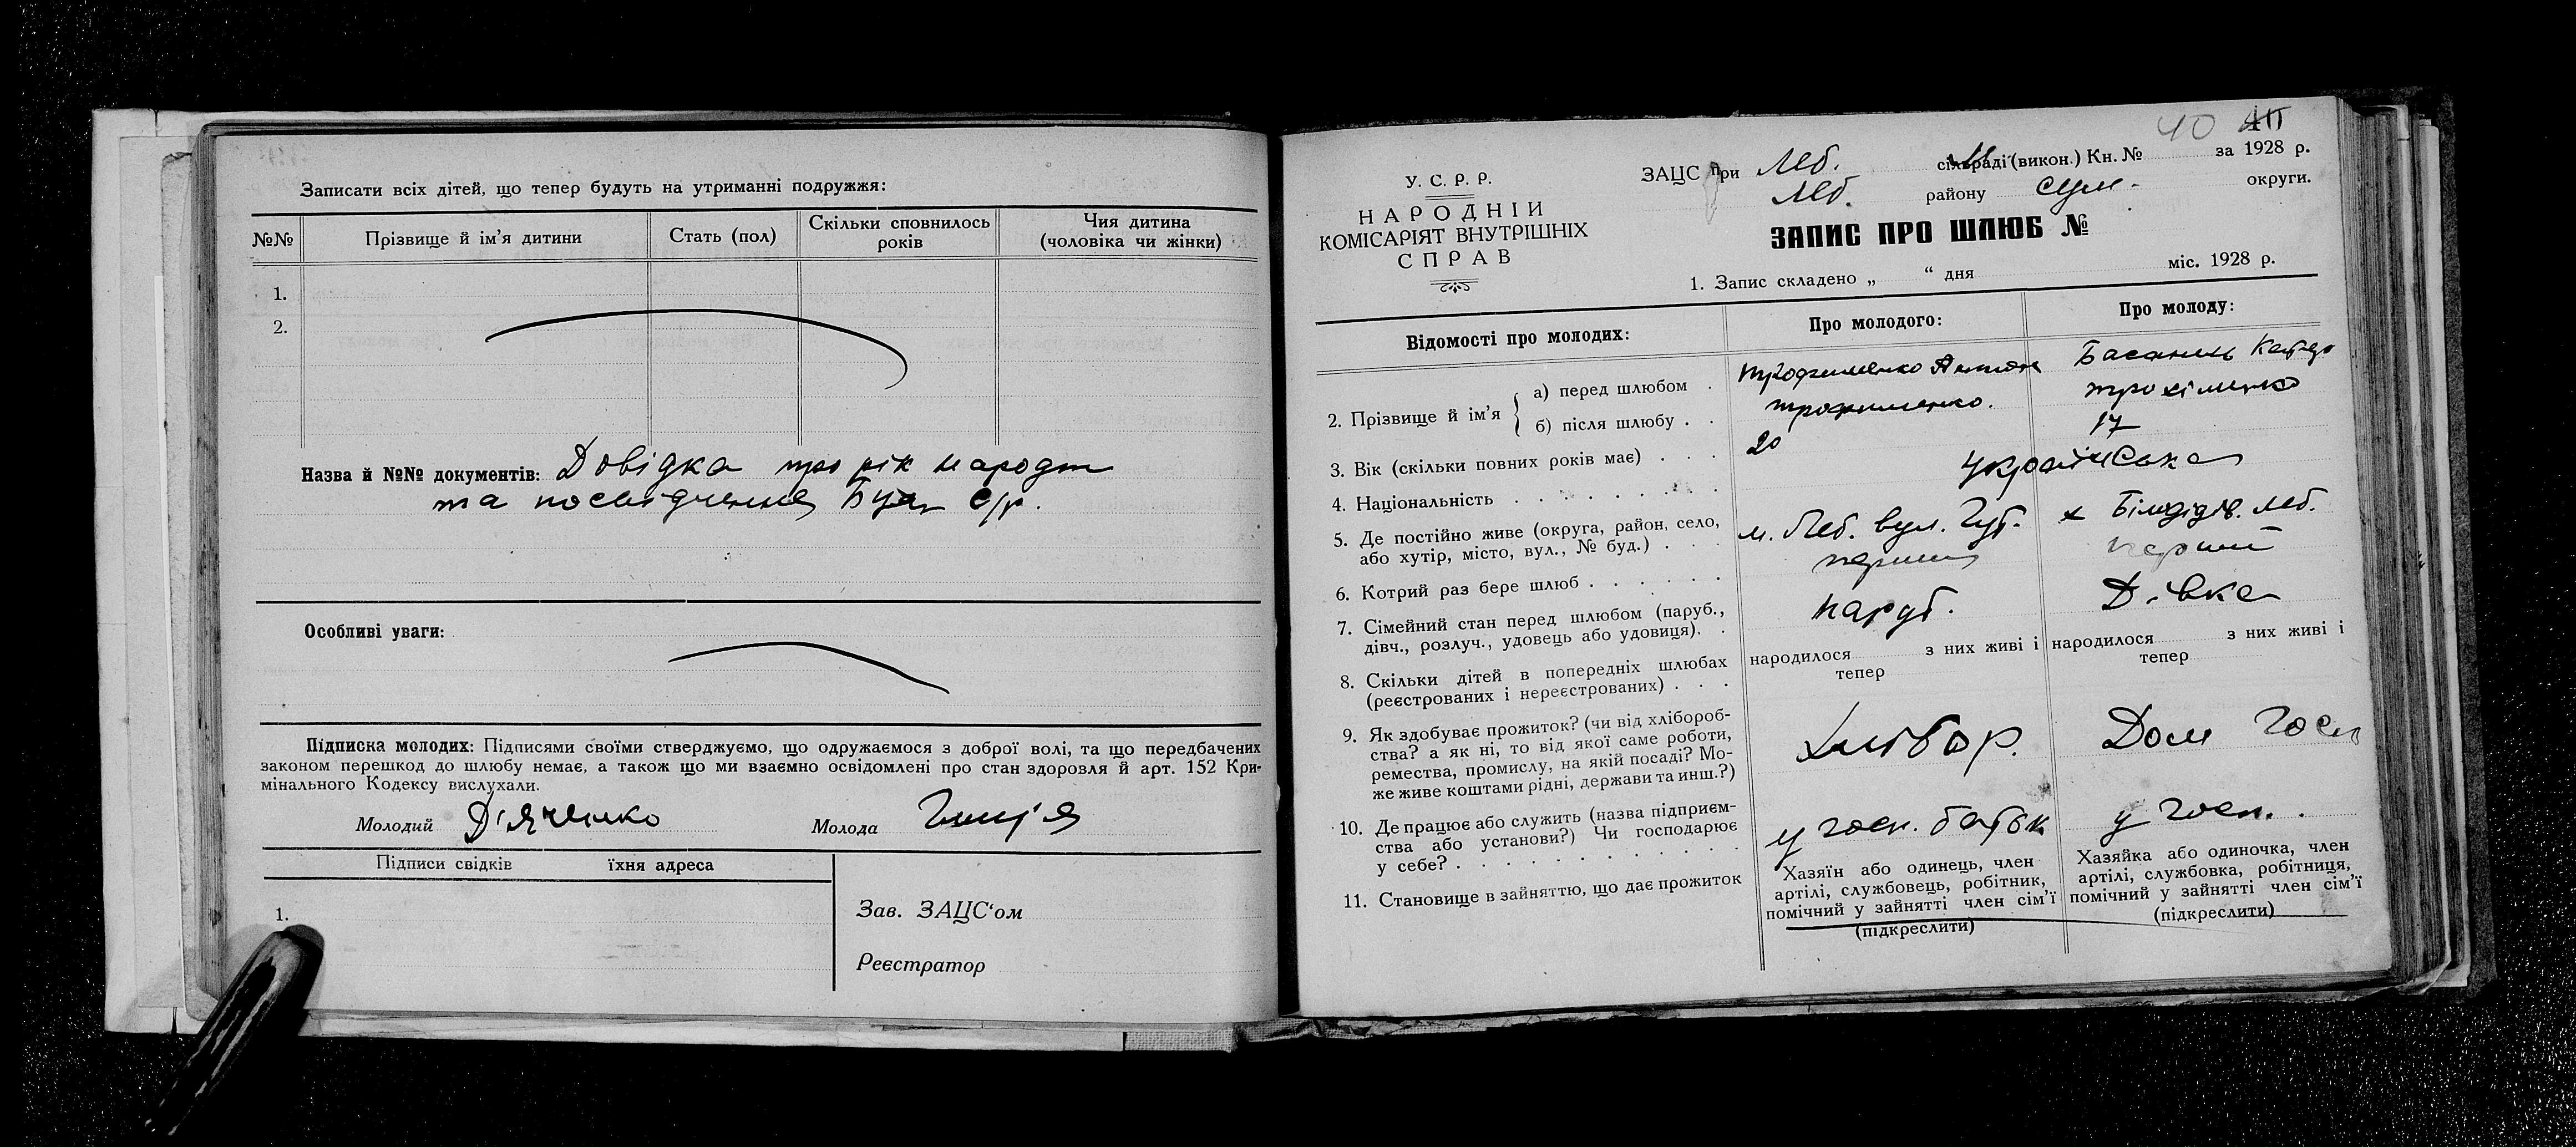 Записати всіх дітей, що тепер будуть на утриманні подружжя:
№№ Прізвище й ім'я дитини Стать (пол) Скільки сповнилось років Чия дитина (чоловіка чи жінки)
1.
2.
Назва й №№ документів: Довідка про рік народж
та посвідчення С/р.
Особливі уваги:
Підписка молодих: Підписями своїми стверджуємо, що одружаємося з доброї волі, та що передбачених
законом перешкод до шлюбу немає, а також що ми взаємно освідомлені про стан здоровля й арт. 152 Кри-
мінального Кодексу вислухали.
Молодий Дяченко Молода
Підписи свідків їхня адреса
1.
Зав. ЗАЦС'ом
Реєстратор
40 40
У. С. Р. Р.
НАРОДНІЙ
КОМІСАРІЯТ ВНУТРІШНІХ
СПРАВ
ЗАЦС при Леб. сільраді (викон.) Кн. № за 1928 р.
Леб. району Сум. округи.
ЗАПИС ПРО ШЛЮБ №
1. Запис складено „ “ дня міс. 1928 р.
Відомості про молодих: Про молодого: Про молоду:
2. Прізвище й ім'я
а) перед шлюбом . Трофименко Антон
б) після шлюбу . . Трофименко. Трохіменко
3. Вік (скільки повних років має) . . . 20 17
4. Національність . . . . . . . . . Українська
5. Де постійно живе (округа, район, село,
або хутір, місто, вул., № буд.) . . . м. Леб. вул. Гут. х Білодідів. Леб.
6. Котрий раз бере шлюб . . . . . . перший перший
7. Сімейний стан перед шлюбом (паруб.,
дівч., розлуч., удовець або удовиця). . Паруб. Дівка
8. Скільки дітей в попередніх шлюбах
(реєстрованих і нереєстрованих) . . .
народилося з них живі і
тепер
народилося з них живі і
тепер
9. Як здобуває прожиток? (чи від хлібороб-
ства? а як ні, то від якої саме роботи,
ремества, промислу, на якій посаді? Мо-
же живе коштами рідні, держави та инш.?)
Хлібор. Дом госп
10. Де працює або служить (назва підприєм-
ства або установи?) Чи господарює
у себе? . . . . . . . . . . .
у госп. батьк у госп.
11. Становище в зайняттю, що дає прожиток
Хазяїн або одинець, член
артілі, службовець, робітник,
помічний у зайнятті член сім'ї
(підкреслити)
Хазяйка або одиночка, член
артілі, службовка, робітниця,
помічний у зайнятті член сім'ї
(підкреслити)